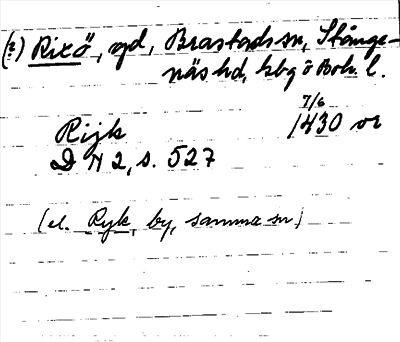 (?) Rixö, gd, Brastads sn, Stånge-
näs hd, Gbg o Boh. l.
7/6
Rijk 1430 or
D N 2, s. 527
(el. Ryk, by, samma sn)